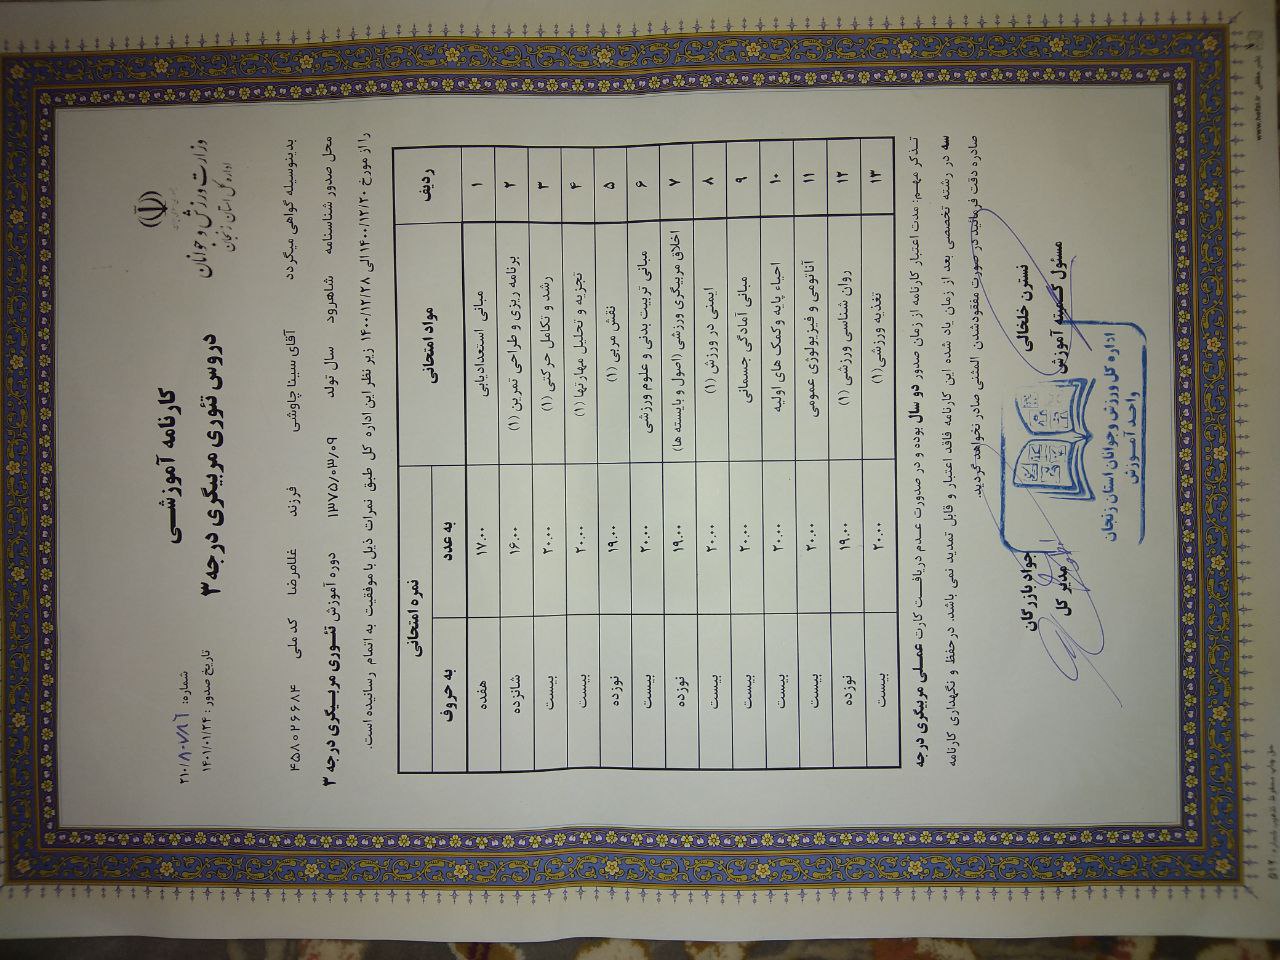 وزارت ورزش و جوانان
اداره کل استان زنجان
کارنامه آموزشی
دروس تئوری مربیگری درجه ۳
شماره: ۲۱۰/۸۰۷۸۶
تاریخ صدور: ۱۴۰۱/۰۱/۲۴
بدینوسیله گواهی میگردد آقای سینا چاوشی فرزند غلامرضا کد ملی ۴۵۸۰۲۶۶۸۴
محل صدور شناسنامه شاهرود سال تولد ۱۳۷۵/۰۳/۰۹ دوره آموزش تئوری مربیگری درجه ۳
را از مورخ ۱۴۰۰/۱۲/۲۰ الی ۱۴۰۰/۱۲/۲۸ زیر نظر این اداره کل طبق نمرات ذیل با موفقیت به اتمام رسانیده است.
ردیف مواد امتحانی نمره امتحانی
به عدد به حروف
۱ مبانی استعدادیابی ۱۷.۰۰ هفده
۲ برنامه ریزی و طراحی تمرین (۱) ۱۶.۰۰ شانزده
۳ رشد و تکامل حرکتی (۱) ۲۰.۰۰ بیست
۴ تجزیه و تحلیل مهارتها (۱) ۲۰.۰۰ بیست
۵ نقش مربی (۱) ۱۹.۰۰ نوزده
۶ مبانی تربیت بدنی و علوم ورزشی ۲۰.۰۰ بیست
۷ اخلاق مربیگری ورزشی (اصول و بایسته ها) ۱۹.۰۰ نوزده
۸ ایمنی در ورزش (۱) ۲۰.۰۰ بیست
۹ مبانی آمادگی جسمانی ۲۰.۰۰ بیست
۱۰ احیاء پایه وکمک های اولیه ۲۰.۰۰ بیست
۱۱ آناتومی و فیزیولوژی عمومی ۲۰.۰۰ بیست
۱۲ روان شناسی ورزشی (۱) ۱۹.۰۰ نوزده
۱۳ تغذیه ورزشی(۱) ۲۰.۰۰ بیست
تـذکر مهـم: مدت اعتبار کارنامه از زمان صدور دو سال بوده و در صدورت عـدم دریافـت کارت عملـی مربیگری درجه
سه در رشته تخصصی بعد از زمان یاد شده این کارنامه فاقد اعتبار و قابل تمدید نمی باشد. درحفظ و نگهداری کارنامه
صادره دقت فرمائید در صورت مفقودشدن المثنی صادر نخواهد گردید.
نسترن خلخالی
مسئول کمیته آموزش
جواد بازرگان
مدیر کل
اداره کل ورزش وجوانان استان زنجان
واحـد آمـوزش
www.hefzi.ir